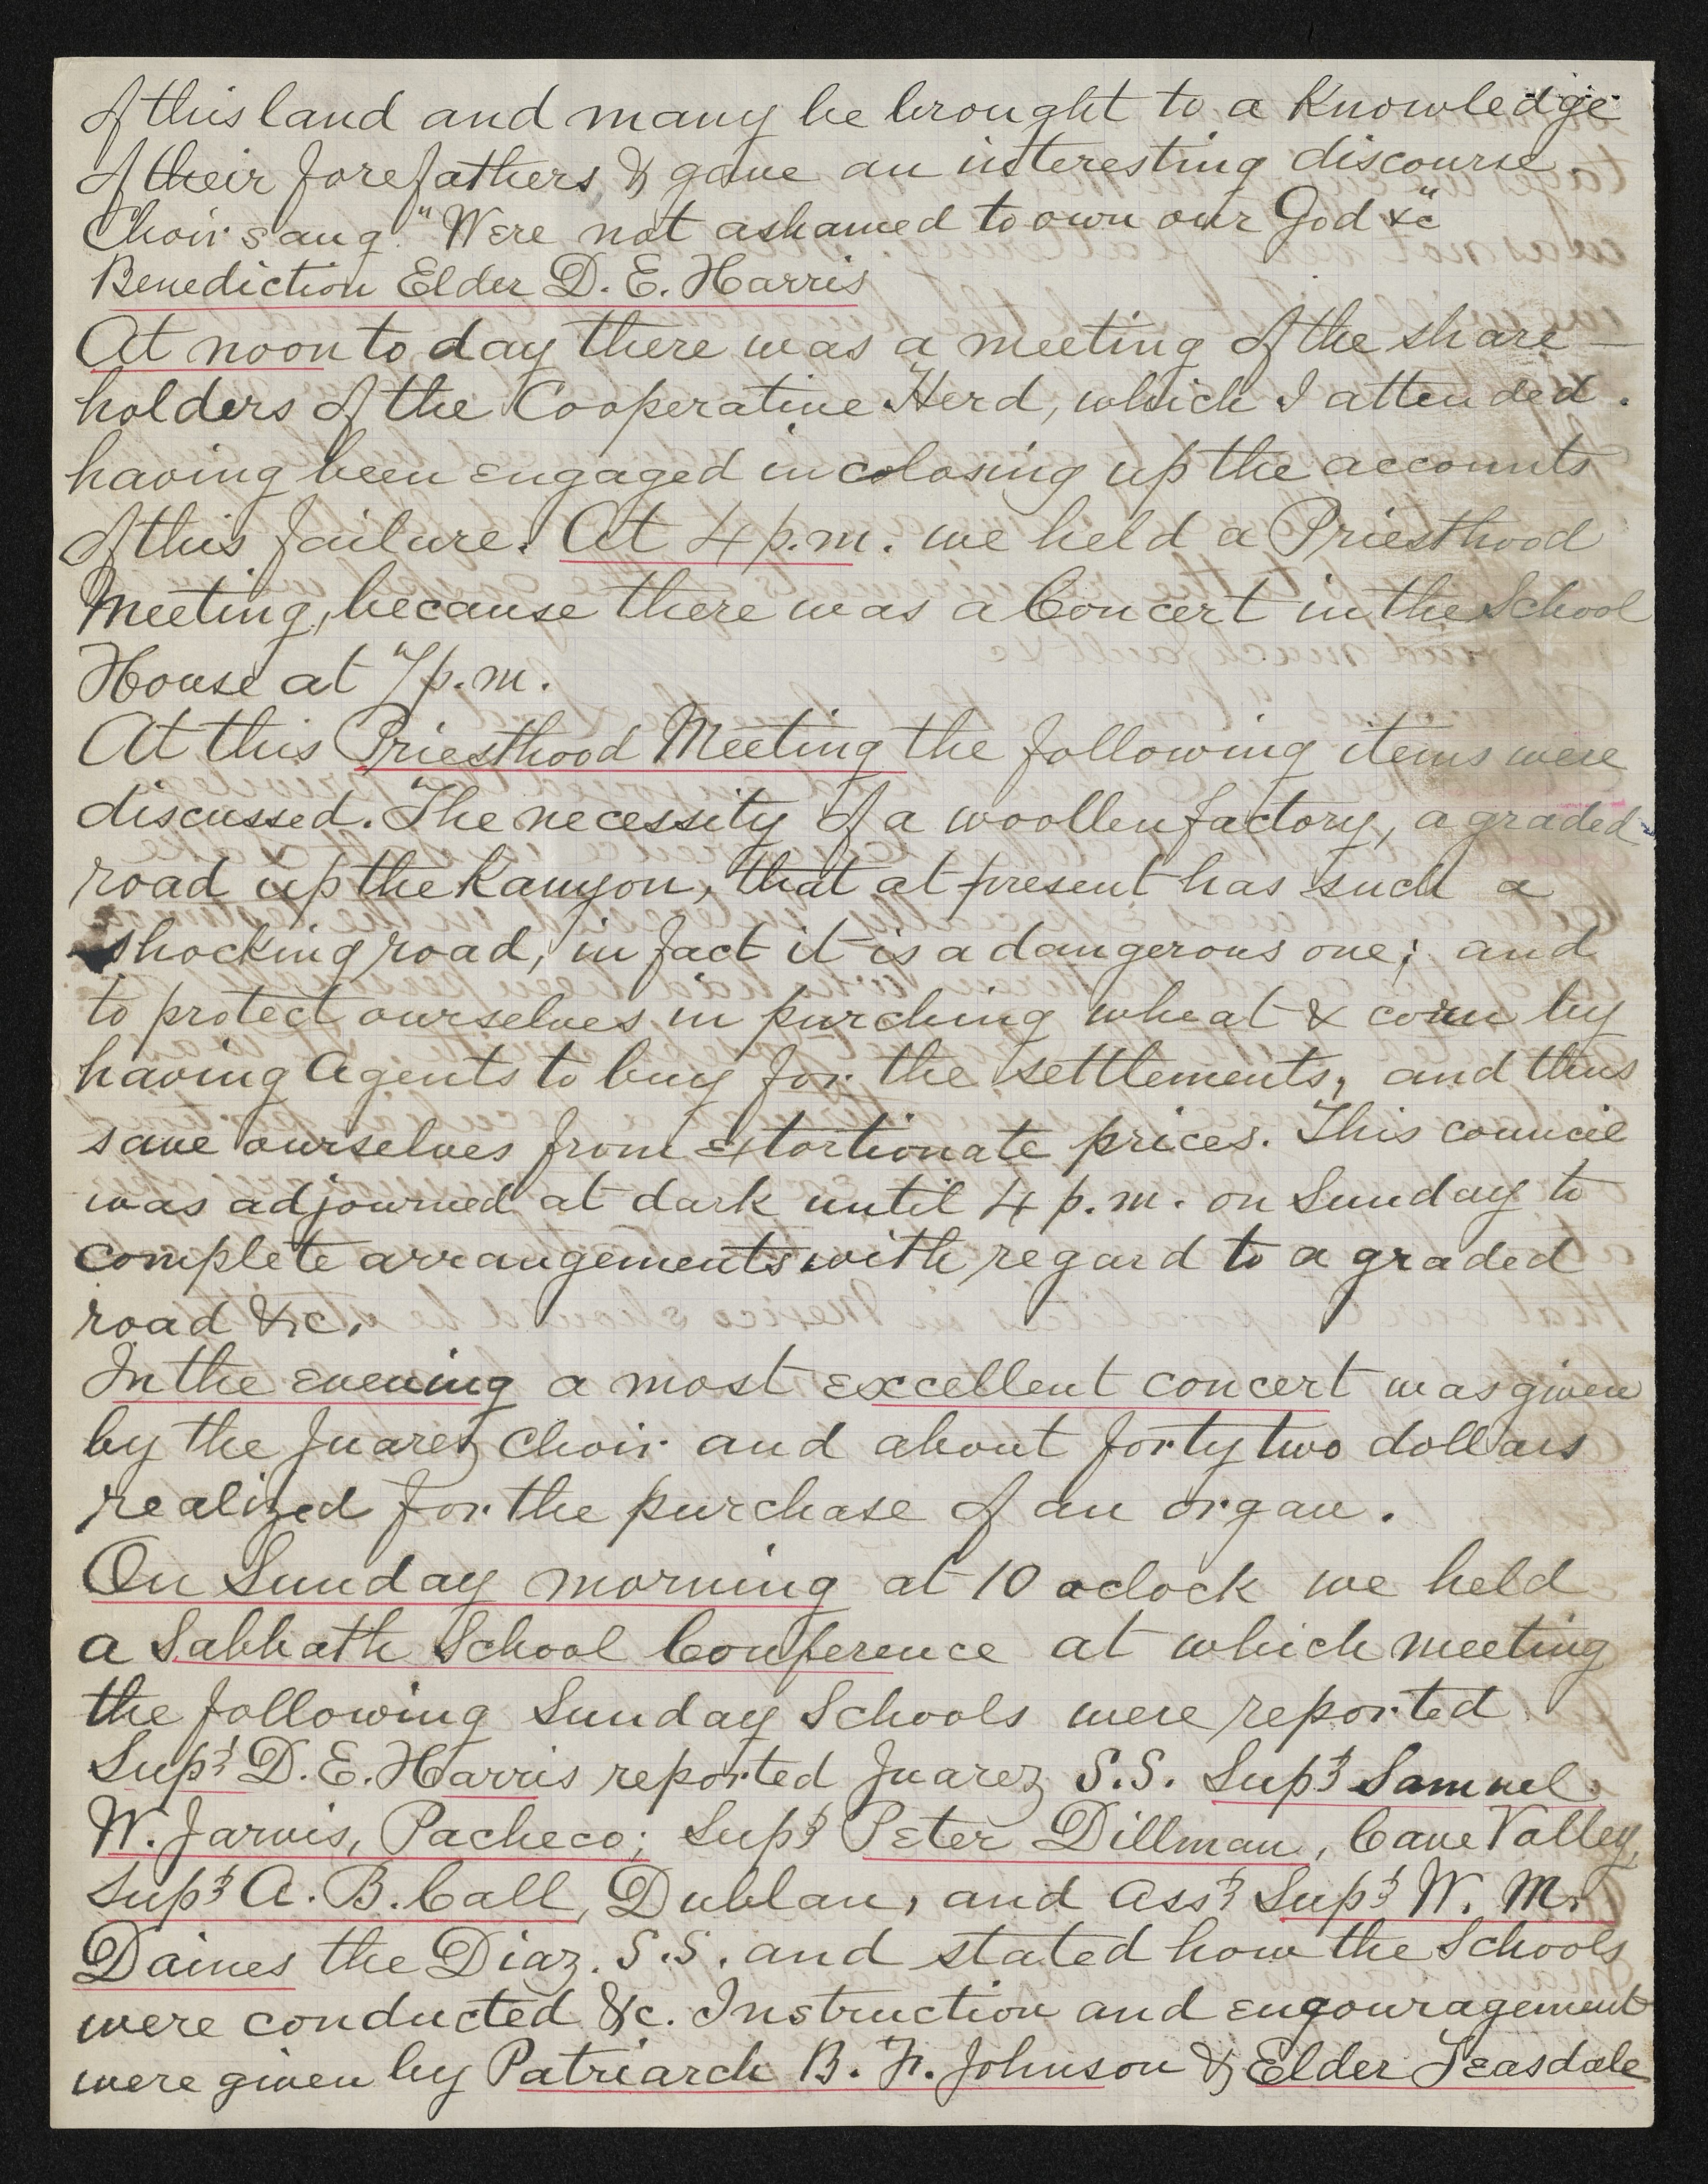 of this land and many be brought to a Knowledge
of their forefathers, & gave an interesting discourse.
Choir sang. "Were not ashamed to own our God &c"
Benediction Elder D. E. Harris
At noon to day there was a meeting of the share-
holders of the Cooperative Herd, which I attended.
having been engaged in colosing up the accounts
of this failure. At 4 p.m. we held a Priesthood
Meeting, because there was a Concert in the School
House at 7 p.m.
At this Priesthood Meeting the following items were
discussed. The necessity of a woollen factory, a graded
road up the Kanyon, that at present has such a
shocking road, in fact it is a dangerous one; and
to protect ourselves in purching wheat & corn by
having Agents to buy for the settlements, and thus
save ourselves from extortionate prices. This council
was adjourned at dark until 4 p.m. on Sunday to
complete arrangements with regard to a graded
road &c.
In the evening a most excellent concert was given
by the Juarez Choir and about forty two dollars
realized for the purchase of an organ.
On Sunday morning at 10 oclock we held
a Sabbath School Conference at which meeting
the following Sunday Schools were reported
Supt D. E. Harris reported Juarez S.S. Supt Samuel
W. Jarvis, Pacheco; Supt Peter Dillman, Cave Valley,
Supt A. B. Call, Dublan, and Asst Supt W. M.
Daines the Diaz. S.S. and stated how the Schools
were conducted &c. Instruction and engouragement
were given by Patriarch B. F. Johnson & Elder Teasdale